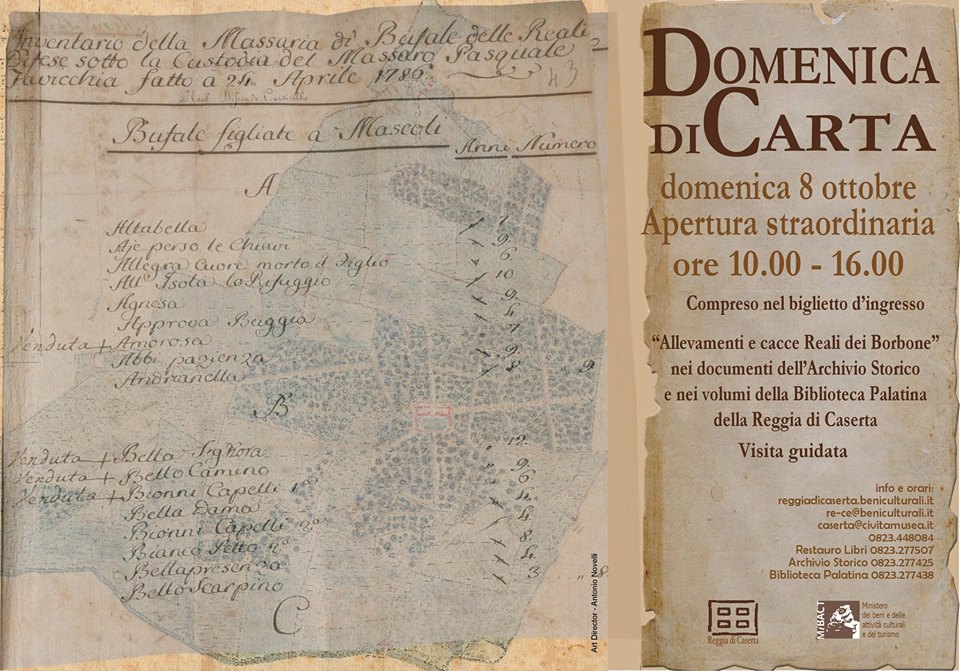 Inventario della Massaria di Bufale delle Reali
Difese sotto la Custodia del Massaro Pasquale
fatto à 24 Aprile 1789
43
Bufale figliate a Mascoli
Anni Numero
A
Altabella 7
Aje perso le Chiavi 9
Allegra Cuore morto il Figlio 6
All' Isola lo Rifuggio 10
Agnesa 9
Approva Buggia 4
Venduta + Amorosa
Abbi pazienza
Andrianella
B
Venduta + Bella Signora 12
Venduta + Bello Camino 9
Venduta + Bionni Capelli 1º 6
Bella Dama 4
Bionni Capelli 2º 4
Bianco Petto 2º 8
Bellapresenza 4
Bello Scarpino 3
C
Art Director - Antonio Novelli
DOMENICA
DI CARTA
domenica 8 ottobre
Apertura straordinaria
ore 10.00 - 16.00
Compreso nel biglietto d'ingresso
“Allevamenti e cacce Reali dei Borbone”
nei documenti dell'Archivio Storico
e nei volumi della Biblioteca Palatina
della Reggia di Caserta
Visita guidata
info e orari:
reggiadicaserta.beniculturali.it
re-ce@beniculturali.it
caserta@civitamusea.it
0823.448084
Restauro Libri 0823.277507
Archivio Storico 0823.277425
Biblioteca Palatina 0823.277438
Reggia di Caserta
MiBACT
Ministero
dei beni e delle
attività culturali
e del turismo